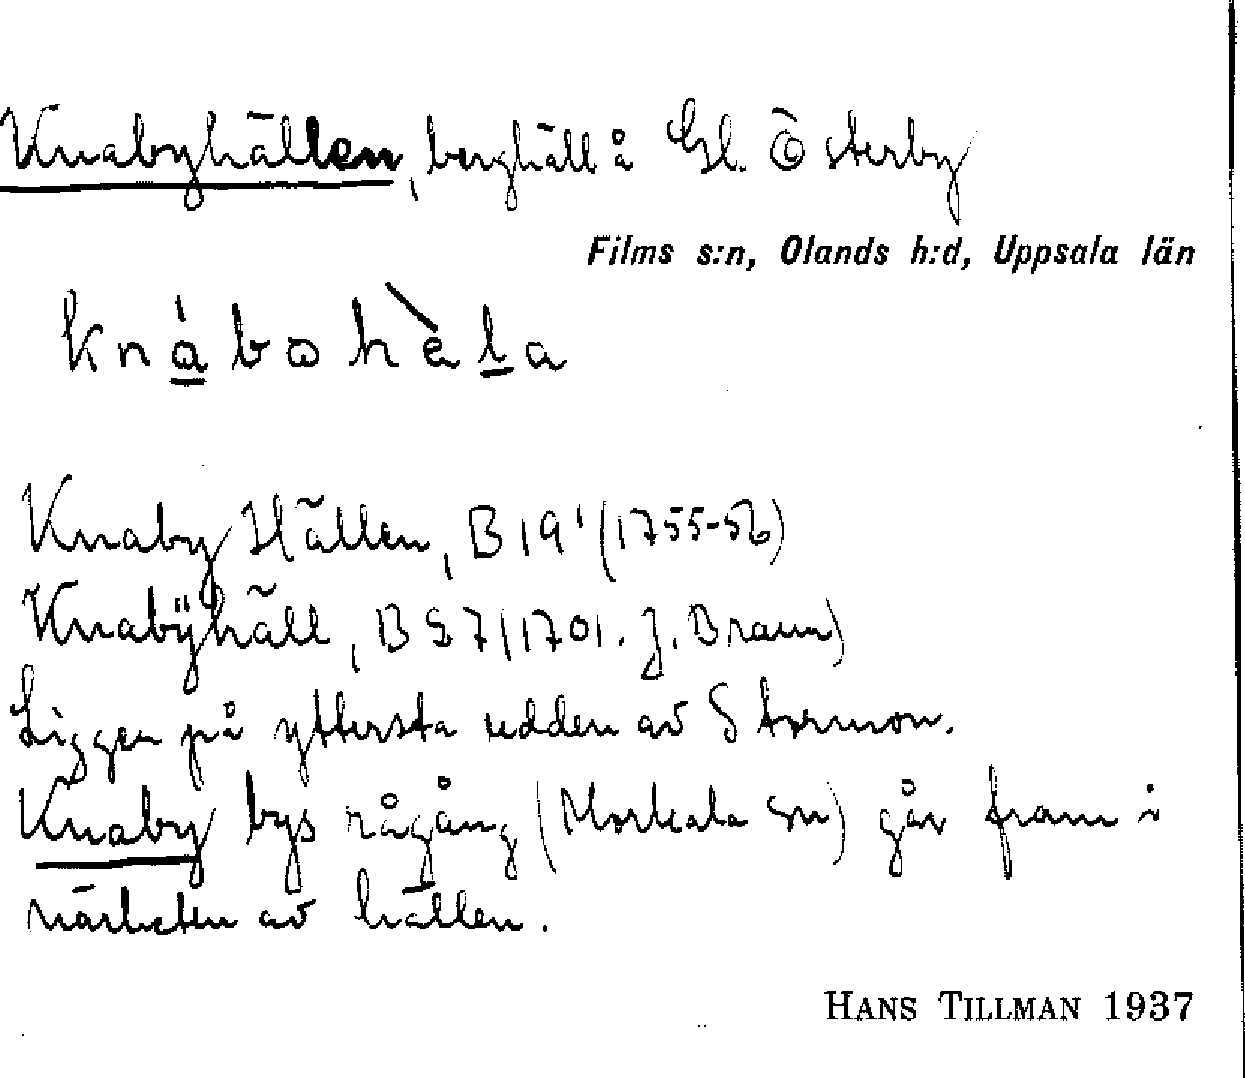 Knabyhällen, berghäll å Gl. Österby
Films s:n, Olands h:d, Uppsala län
knábohèla
Knaby Hällen, B 19¹ (1755-56)
Knabÿhäll, B 57 (1701. J. Braun)
Ligger på yttersta udden av Stormon.
Knaby bys rågång (Morkala sn) går fram i
närheten av hällen.
HANS TILLMAN 1937